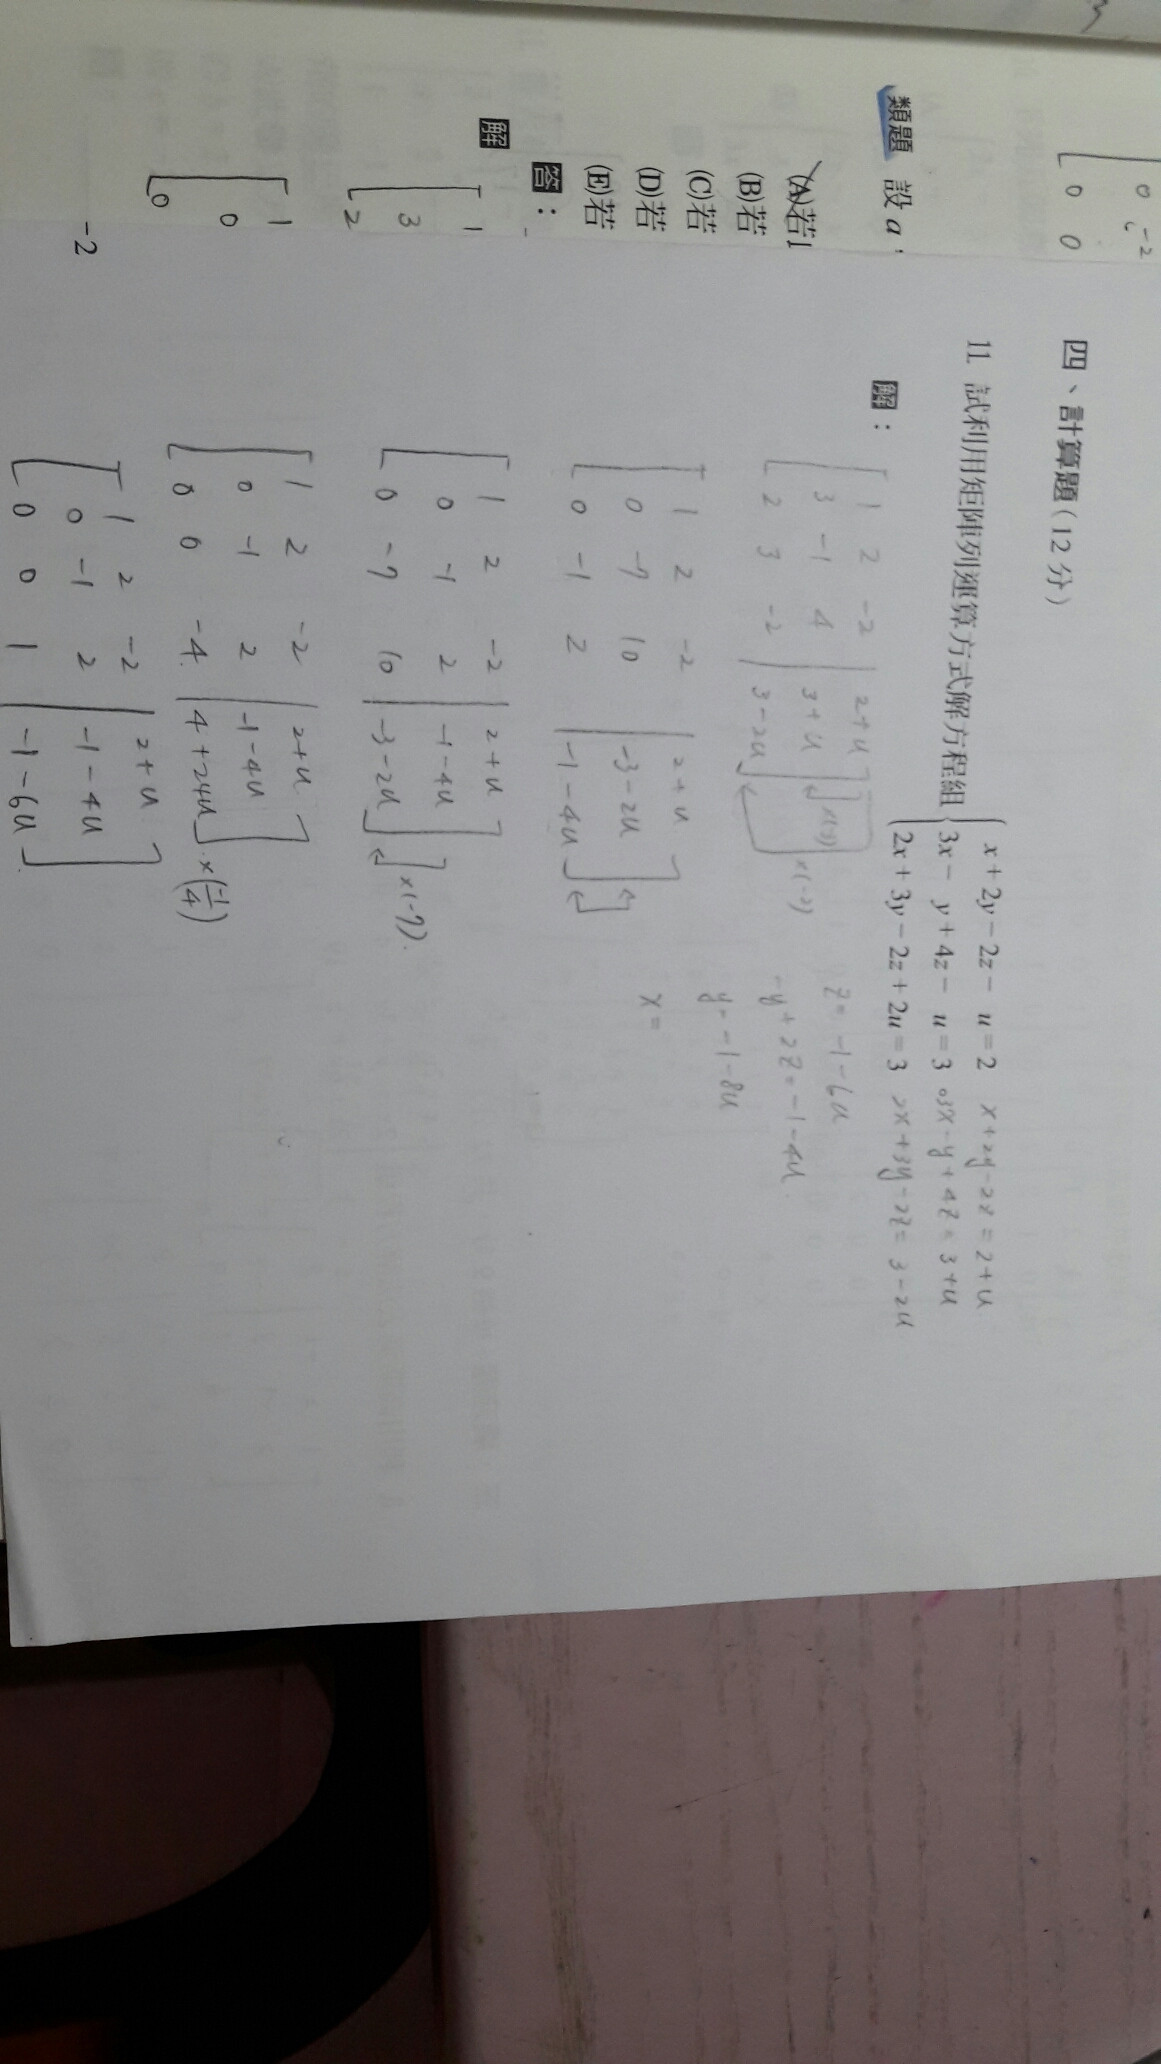 0 -2
0 0
類題 設 a
四、計算題(12分)
11. 試利用矩陣列運算方式解方程組
x+2y-2z- u=2 x+2y-2z=2+u
3x- y+4z- u=3 3x-y+4z=3+u
2x+3y-2z+2u=3 2x+3y-2z=3-2u
解:
1 2 -2 2+u
3 -1 4 3+u ×(-3)
2 3 -2 3-2u ×(-2)
1 2 -2 2+u
0 -7 10 -3-2u
0 -1 2 -1-4u
1 2 -2 2+u
0 -1 2 -1-4u
0 -7 10 -3-2u ×(-7)
1 2 -2 2+u
0 -1 2 -1-4u
0 0 -4 4+24u ×(-1/4)
1 2 -2 2+u
0 -1 2 -1-4u
0 0 1 -1-6u
z=-1-6u
-y+2z=-1-4u
y=-1-8u
x=
(A)若1
(B)若
(C)若
(D)若
(E)若
答:
解
1
3
2
1
0
0
-2